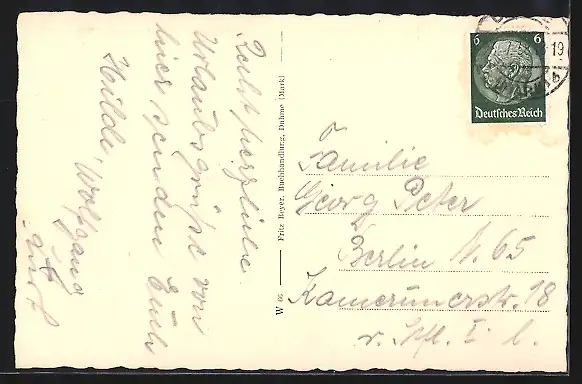 Recht herzliche
Urlaubsgrüße von
hier senden Euch
Hilde, Wolfgang
u.
Fritz Beyer, Buchhandlung, Dahme (Mark)
W 66
6 6
Deutsches Reich
19
Familie
Georg Peter
Berlin N. 65
Kamerunerstr. 18
v. Stfl. I. l.